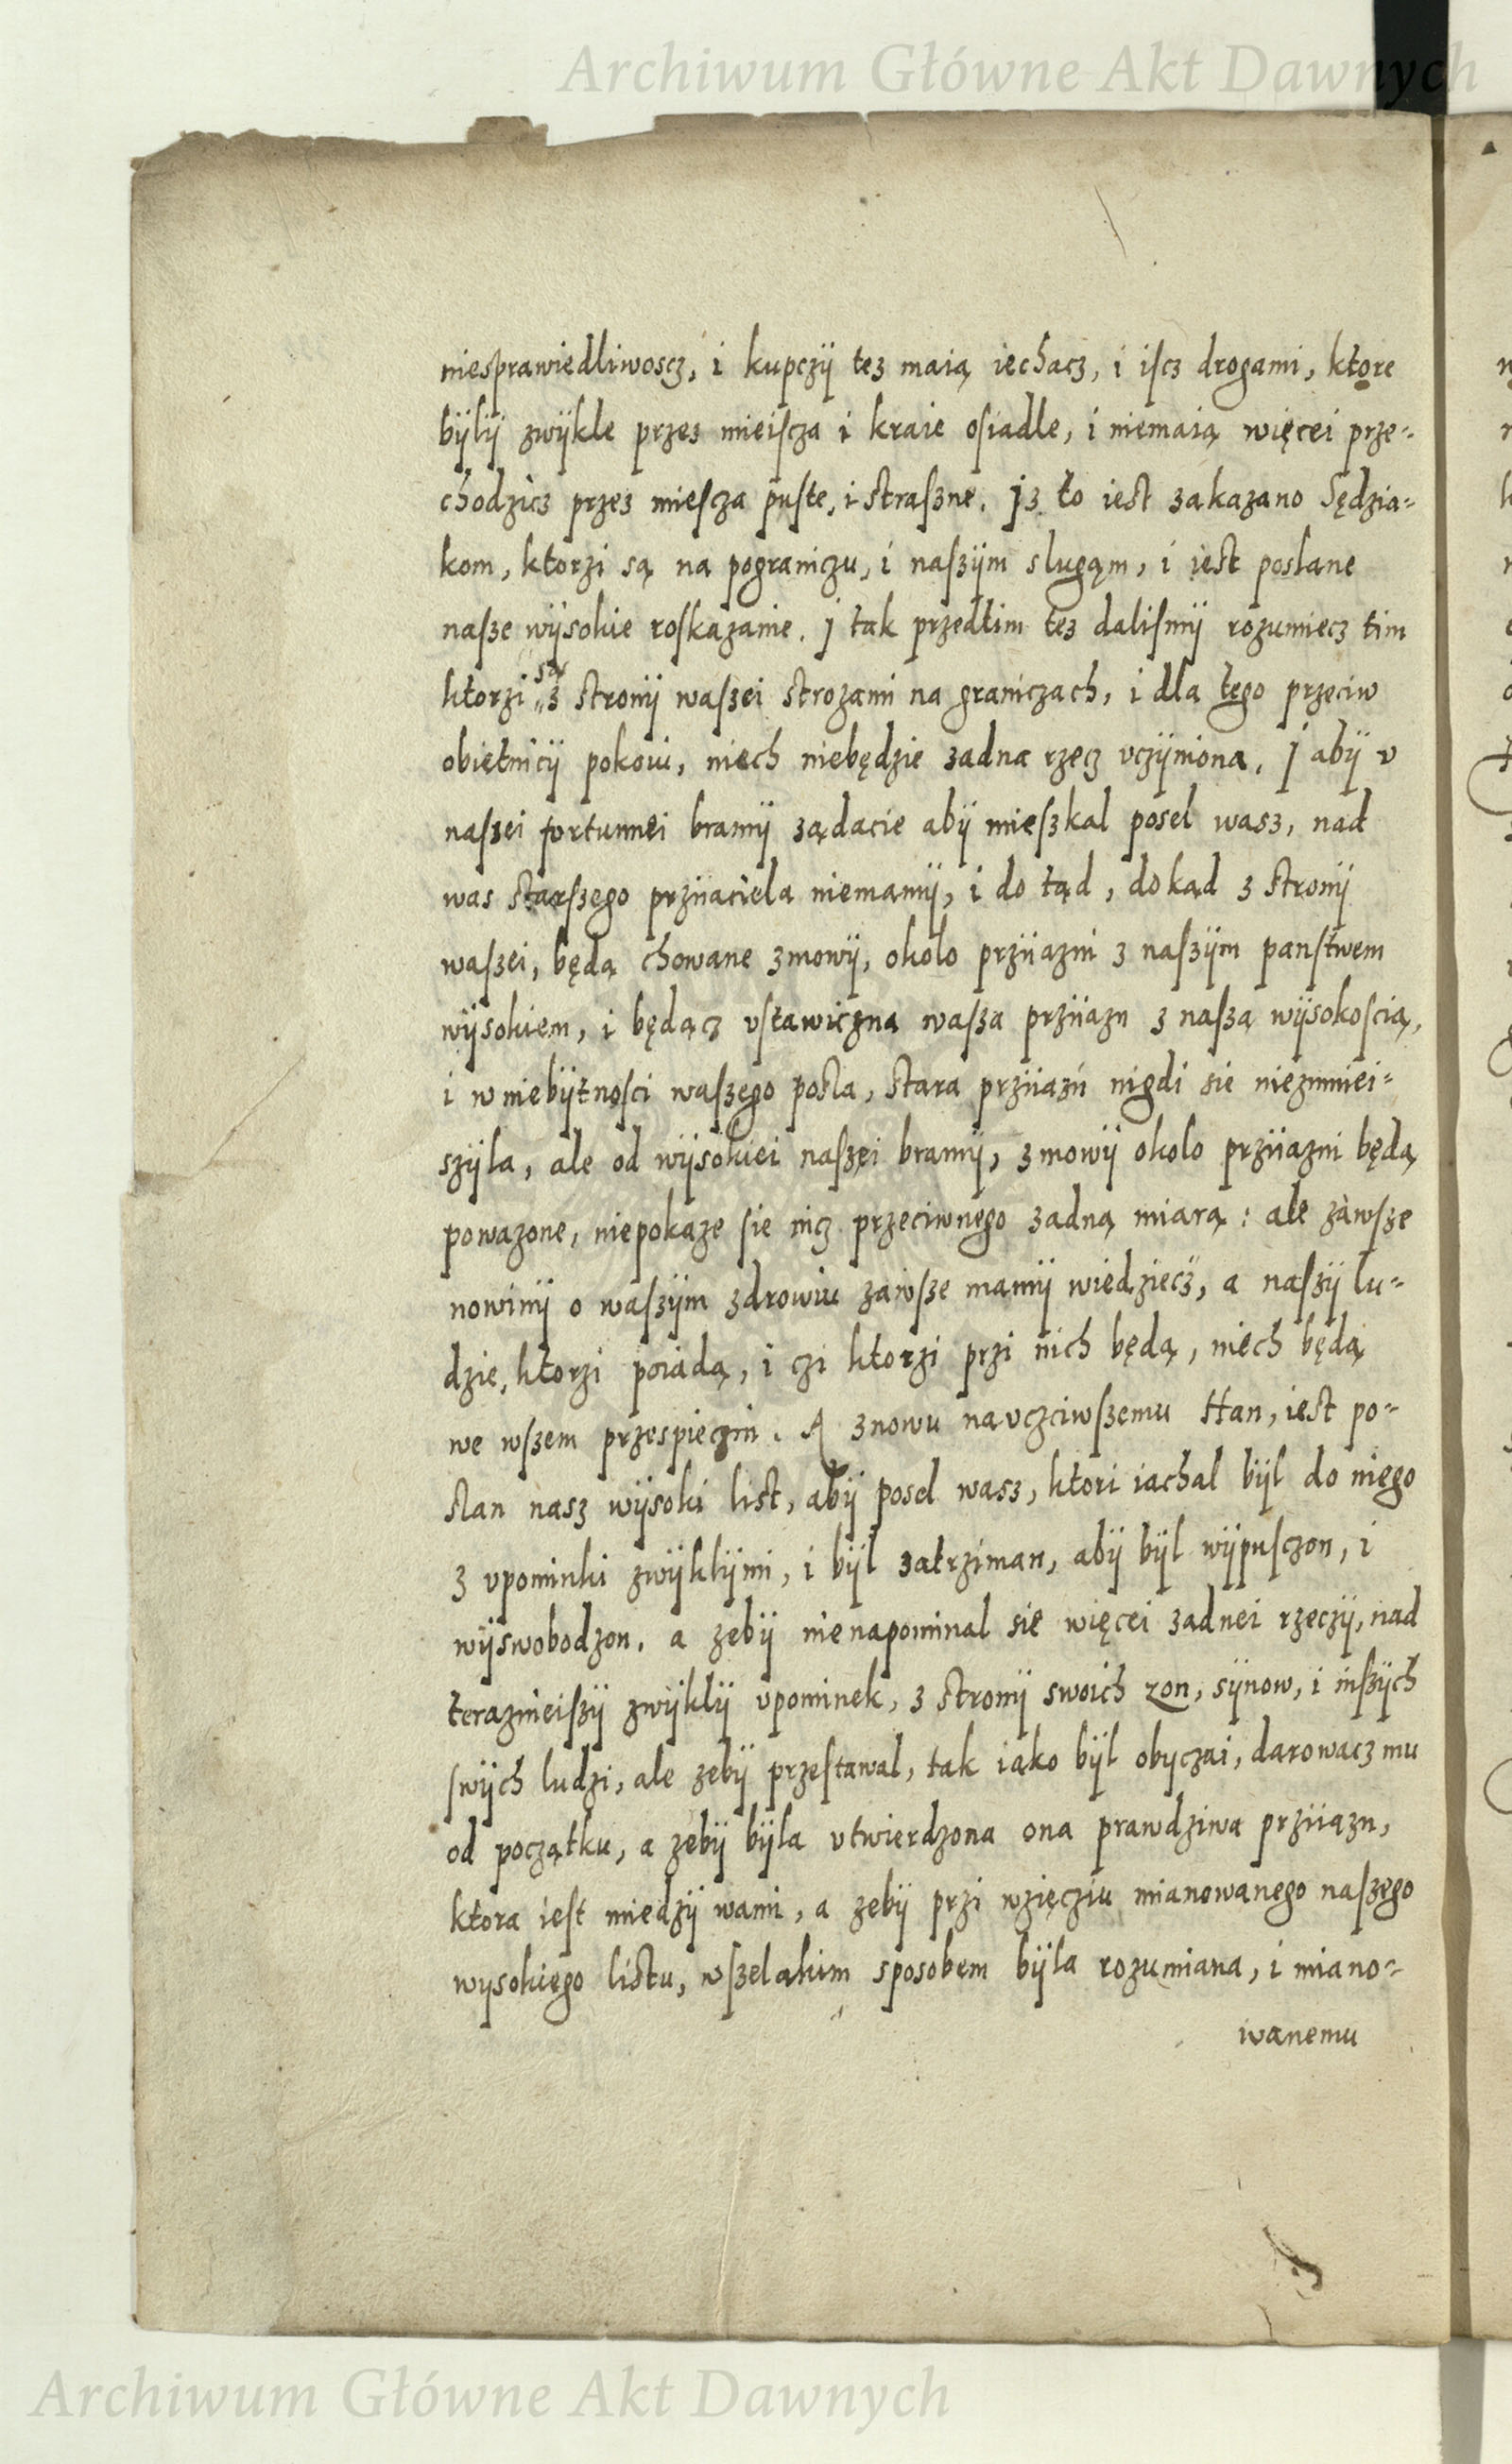 Archiwum Główne Akt Dawnych
niesprawiedliwoscz, i kupczÿ tez maią iechacz, i iscz drogami, ktore
bÿlÿ zwÿkle przez mieiscza i kraie osiadle, i niemaią więcei prze=
chodzicz przez miescza puste, i straszne. Jz to iest zakazano Sędzia=
kom, ktorzi są na pograniczu, i naszÿm slugąm, i iest poslane
nasze wÿsokie roskazanie. J tak przedtim tez dalismÿ rozumiecz tim
ktorzi są z stronÿ waszei strozami na graniczach, i dla tego przeciw
obietnicÿ pokoiu, niech niebędzie zadna rzecz vczÿniona. J abÿ v
naszei fortunnei bramÿ ządacie abÿ mieszkal posel wasz, nad
was starszego przÿiaciela niemamÿ, i do tąd, dokąd z stronÿ
waszei, będą chowane zmowÿ, okolo przÿiazni z naszÿm panstwem
wÿsokiem, i będącz vstawiczna wasza przÿiazn z naszą wÿsokoscią,
i w niebÿtnosci waszego posla, stara przÿiazń nigdi sie niezmniei=
szÿla, ale od wÿsokiei naszei bramÿ, zmowÿ okolo przÿiazni będą
powazone, niepokaze sie nicz przeciwnego zadną miarą: ale zawsze
nowinÿ o waszÿm zdrowiu zawsze mamÿ wiedziecz, a naszÿ lu=
dzie, ktorzi poiadą, i czi ktorzi przi nich będą, niech będą
we wszem przespieczni. A znowu navczciwszemu Han, iest po=
slan nasz wÿsoki list, abÿ posel wasz, ktori iachal bÿl do niego
z vpominki zwÿklÿmi, i bÿl zatrziman, abÿ bÿl wÿpusczon, i
wÿswobodzon. a zebÿ nienapominal sie więcei zadnei rzeczÿ, nad
teraznieiszÿ zwÿklÿ vpominek, z stronÿ swoich zon, sÿnow, i inszÿch
swÿch ludzi, ale zebÿ przestawal, tak iako bÿl obyczai, darowacz mu
od początku, a zebÿ bÿla vtwierdzona ona prawdziwa przÿiazn,
ktora iest miedzÿ wami, a zebÿ przi wzięcziu mianowanego naszego
wysokiego listu, wszelakim sposobem bÿla rozumiana, i miano=
wanemu
Archiwum Główne Akt Dawnych